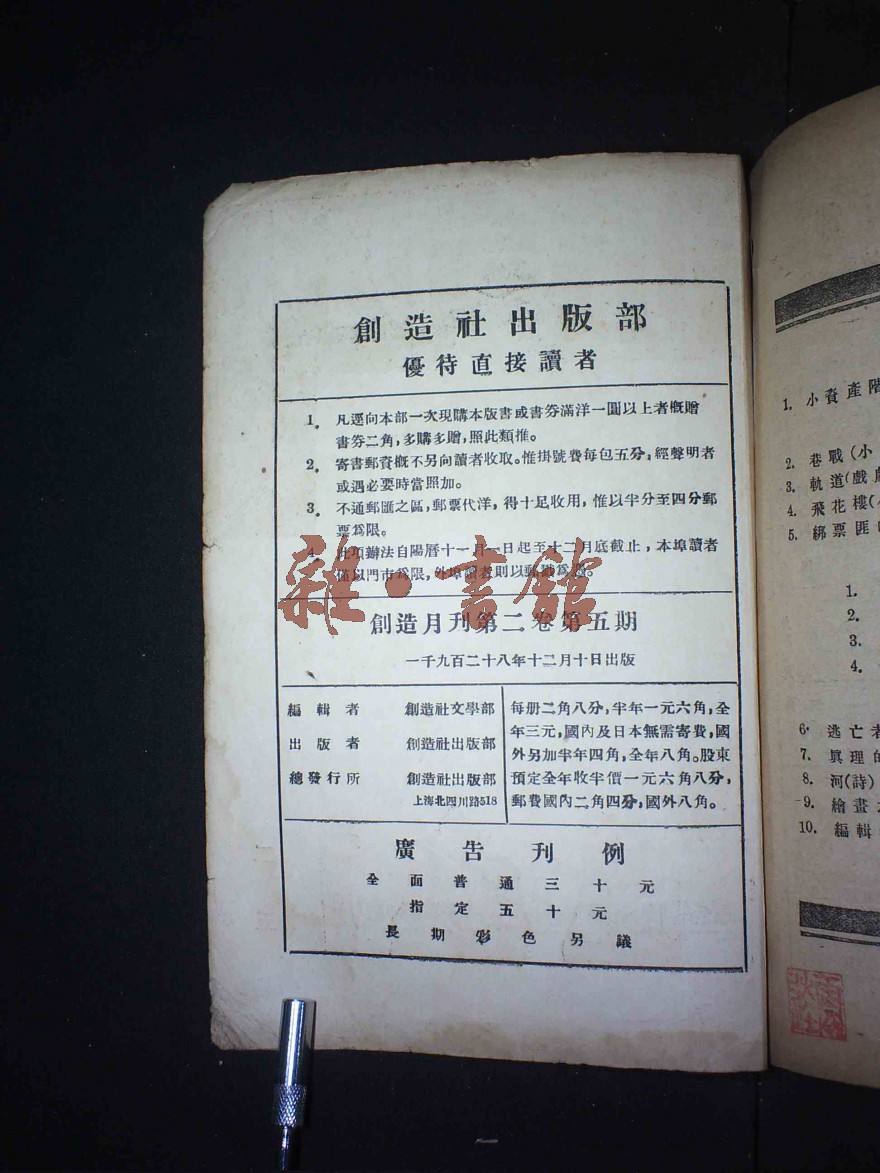 創造社出版部
優待直接讀者
1. 凡逕向本部一次現購本版書或書券滿洋一圓以上者概贈
書券二角,多購多贈,照此類推。
2. 寄書郵資概不另向讀者收取。惟掛號費每包五分,經聲明者
或遇必要時當照加。
3. 不通郵匯之區,郵票代洋,得十足收用,惟以半分至四分郵
票爲限。
4. 此項辦法自陽曆十一月一日起至十二月底截止,本埠讀者
僅以門市爲限,外埠讀者則以郵
雜·書館
創造月刊第二卷第五期
一千九百二十八年十二月十日出版
編輯者 創造社文學部
出版者 創造社出版部
總發行所 創造社出版部
上海北四川路518
每册二角八分,半年一元六角,全
年三元,國內及日本無需寄費,國
外另加半年四角,全年八角。股東
預定全年收半價一元六角八分,
郵費國內二角四分,國外八角。
廣告刊例
全面普通三十元
指定五十元
長期彩色另議
1. 小資產階
2. 巷戰(小
3. 軌道(戲劇
4. 飛花樓(
5. 綁票匪
1.
2.
3.
4.
6. 逃亡者
7. 眞理的
8. 河(詩)
9. 繪畫
10. 編輯